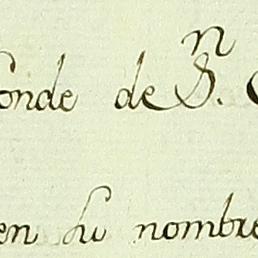 Conde de S.ⁿ C
en su nombre